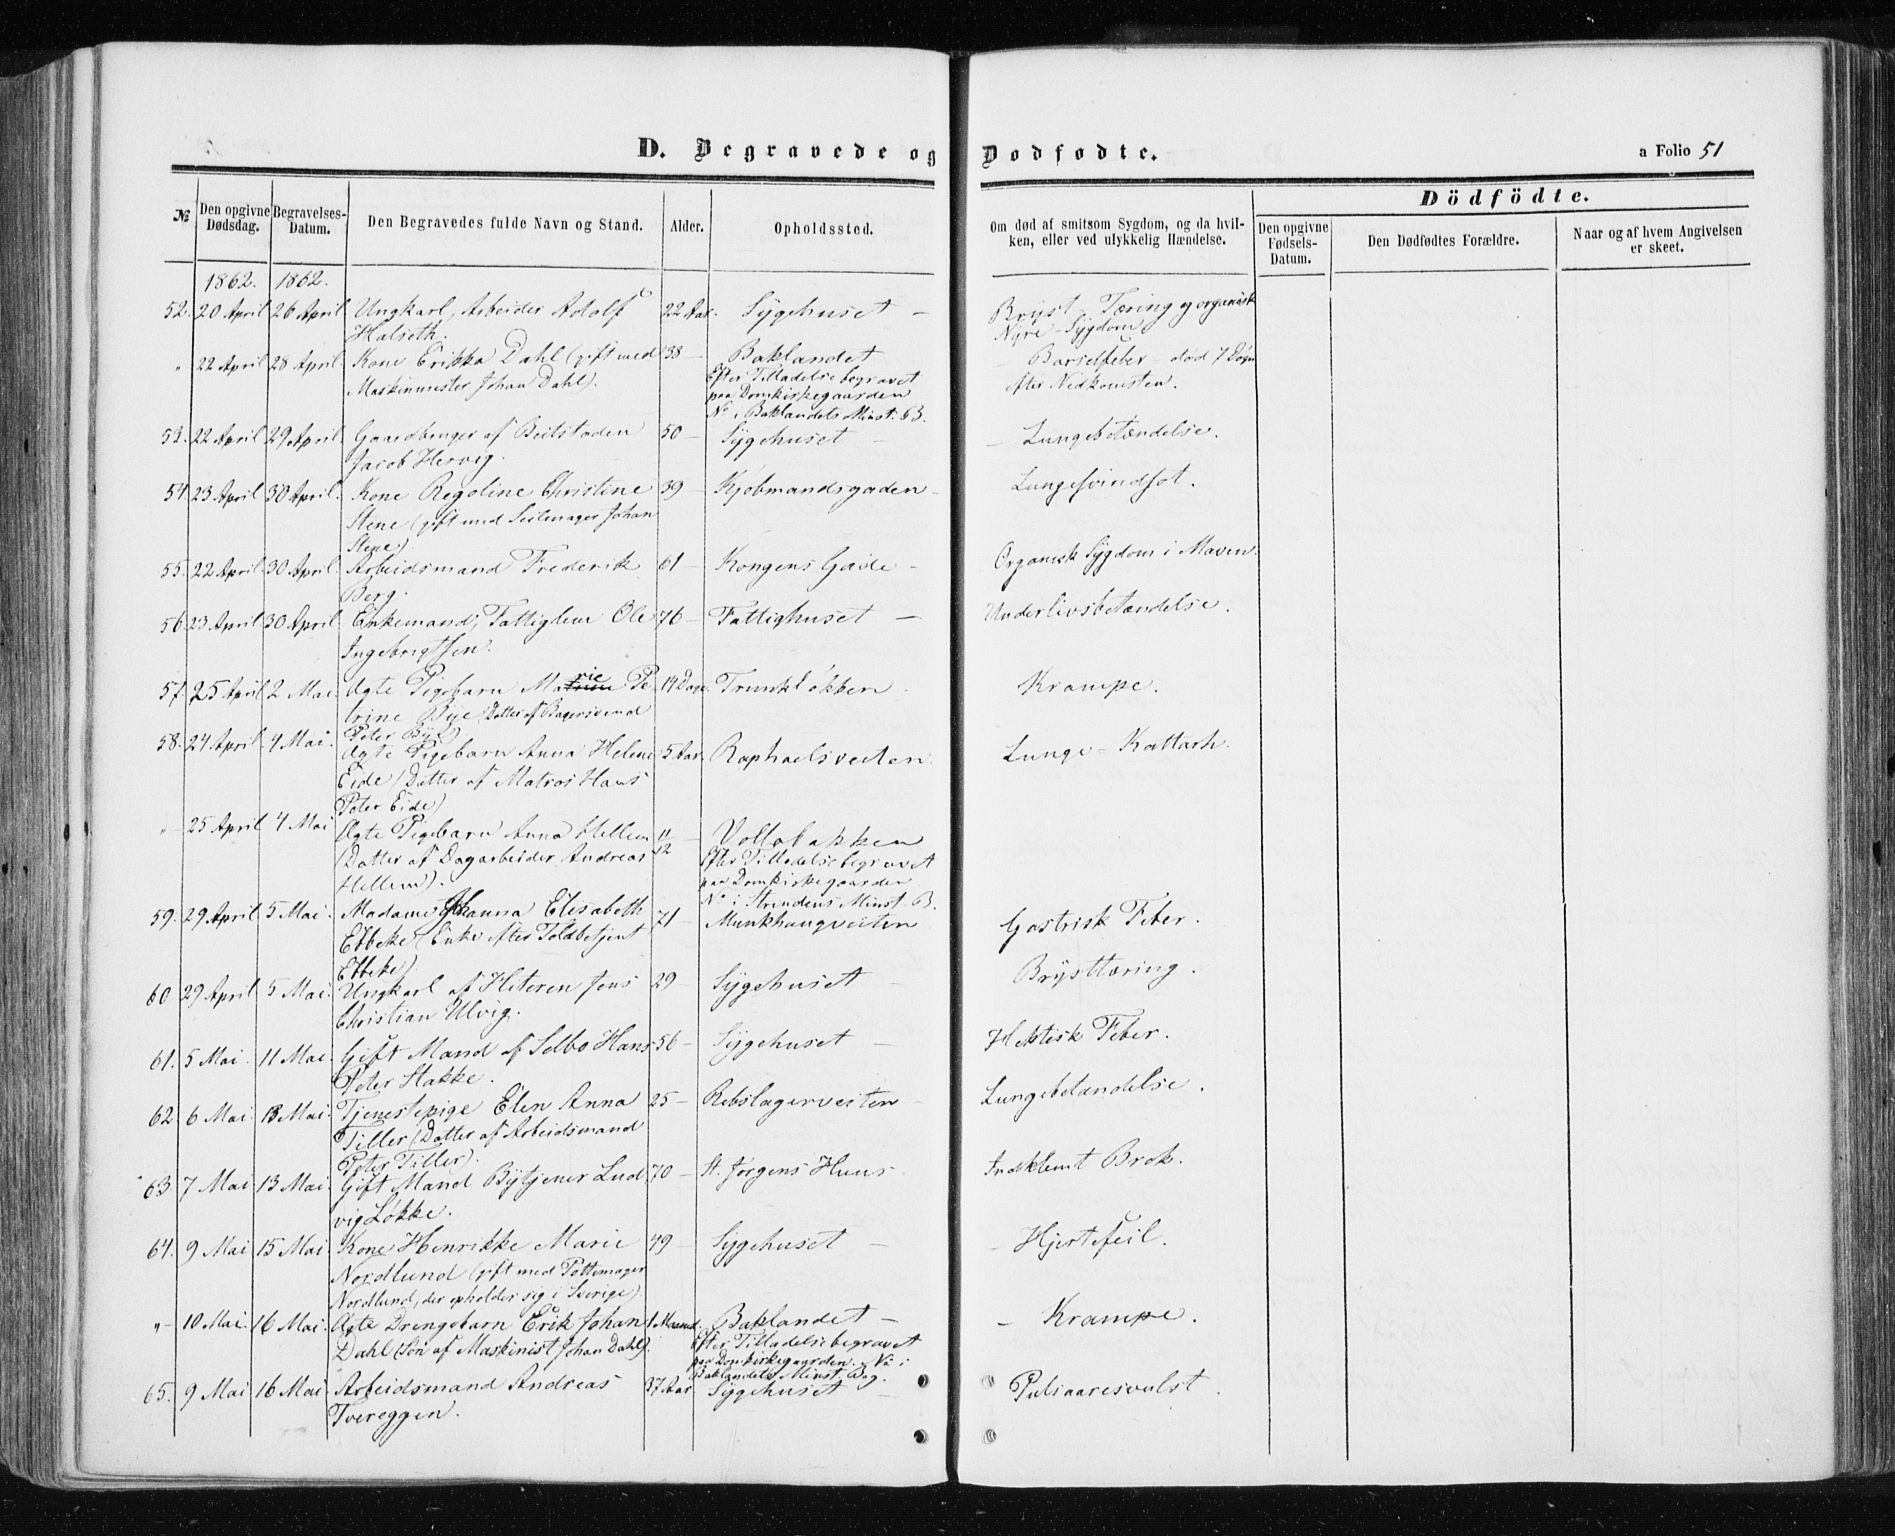 D. Begravede og Dødfødte.
a Folio 51
Dödfödte.
№ Den opgivne Dødsdag. Begravelses-Datum. Den Begravedes fulde Navn og Stand. Alder. Opholdssted. Om død af smitsom Sygdom, og da hvilken, eller ved ulykkelig Hændelse. Den opgivne Fødsels-Datum. Den Dødfødtes Forældre. Naar og af hvem Angivelsen er skeet.
1862. 1862.
52. 20 April 26 April Ungkarl, Arbeider Adolf 22 Aar. Sygehuset – Bryst Tæring og organisk
Halseth. Nyre-Sygdom
" 22 April 28 April. Kone Erikka Dahl (gift med 38 – Baklandet – Barselfeber – død 7 Døgn
Maskinmester Johan Dahl). Efter Tilladelse begravet efter Nedkomsten.
paa Domkirkegaarden
No i Baklandets Minst. B.
53. 22 April 29 April. Gaardbruger af Beitstaden 50 – Sygehuset – – Lungebetændelse.
Jacob Hervig.
54. 23 April 30 April. Kone Regoline Christine 39 – Kjøbmandsgaden – Lungesvindsot.
Stene (gift med Seilmager Johan
Stene)
55. 22 April 30 April. Arbeidsmand Frederik 61 – Kongens Gade – Organisk Sygdom i Maven.
Berg.
56. 23 April 30 April Enkemand, Fattiglem Ole 76 – Fattighuset – Underlivsbetændelse.
Ingebrigtsen.
57. 25 April 2 Mai Ægte Pigebarn Marie Pe 14 Dage. Trunkløkken. Krampe.
trine Bye (Datter af Bagersvend
Peter Bye)
58. 24 April 4 Mai. Ægte Pigebarn Anna Helene 5 Aar. Raphaelsveiten. Lunge-Kattarh.
Eide (Datter af Matros Hans
Peter Eide)
"– 25 April 4 Mai Ægte Pigebarn Anna Hellem 11/12 – Vollabakken
(Datter af Dagarbeider Andreas Efter Tilladelse begravet
Hellem). paa Domkirkegaarden
No i Strindens Minst. B.
59. 29 April 5 Mai. Madame Johanna Elisabeth 71 – Munkhaugveiten Gastrisk Feber.
Ebbeke (Enke efter Toldbetjent
Ebbeke)
60 29 April 5 Mai. Ungkarl af Hiteren Jens 29 – Sygehuset – Brysttæring.
Christian Ulvig.
61. 5 Mai. 11 Mai Gift Mand af Selbo Hans 56 – Sygehuset – Hektisk Feber.
Peter Stakke.
62 6 Mai 13 Mai. Tjenestepige Elen Anna 25 – Rebslagerveiten – Lungebetændelse.
Tiller (Datter af Arbeidsmand
Peter Tiller).
63 7 Mai 13 Mai. Gift Mand Bytjener Lud 70 – St. Jørgens Huus. Indklemt Brok.
vig Løkke.
64. 9 Mai 15 Mai Kone Henrikke Marie 49 – Sygehuset – – Hjertefeil.
Nordlund (gift med Pottemager
Nordlund, der opholder sig i Sverige)
"– 10 Mai. 16 Mai. Ægte Drengebarn Erik Johan 1 Maaned. Baklandet – – Krampe.
Dahl (Søn af Maskinist Johan Dahl). Efter Tilladelse begravet
paa Domkirkegaarden. No i
Baklandets Minst. Bog.
65. 9 Mai 16 Mai Arbeidsmand Andreas 37 Aar Sygehuset – Pulsaaresvulst.
Tvereggen.